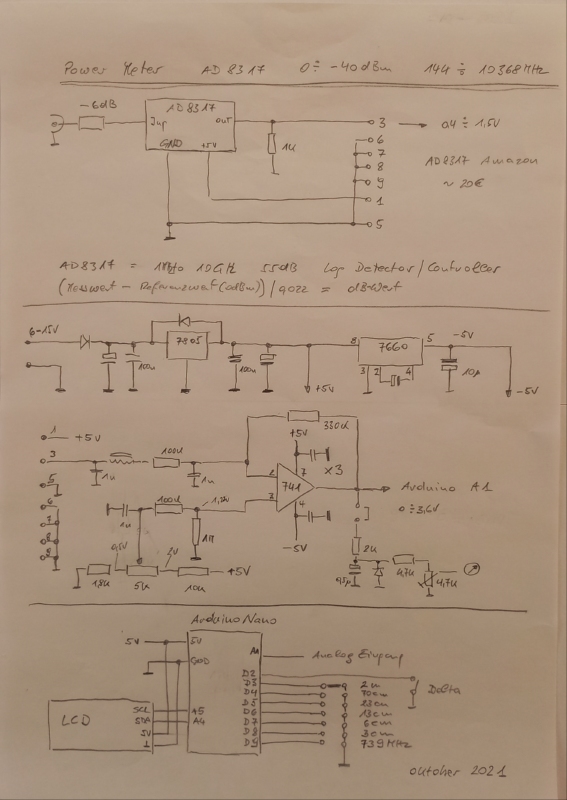 Power Meter AD 8317 0 ÷ -40dBm 144 ÷ 10368MHz
-6dB
AD8317
Inp OUT
GND +5V
1k
3 → 0,4 ÷ 1,5V
6
7
8
9
1
5
AD8317 Amazon
~ 20€
AD8317 = 1M to 10GHz 55dB Log Detector/Controller
(Messwert - Referenzwert(0dBm))/0,022 = dB-Wert
6-15V
7805
100n
100n
+5V
8 7660 5
3 2 4
-5V
10µ
-5V
1 +5V
3
5
6
7
8
9
1u
100k
1u
330k
+5V
7
x3
2
741
3
4
-5V
Arduino A1
0 ÷ 3,6V
1u
100k
1,2V
0,5V
2V
1,8k
5k
10k
+5V
2k
4,7k
4,7k
Arduino Nano
5V
5V
GND
A1
Analog Eingang
D2
D3 2m
D4 70cm
D5 23cm
D6 13cm
D7 6cm
D8 3cm
D9 739MHz
Delta
LCD
SCL A5
SDA A4
5V
Oktober 2021